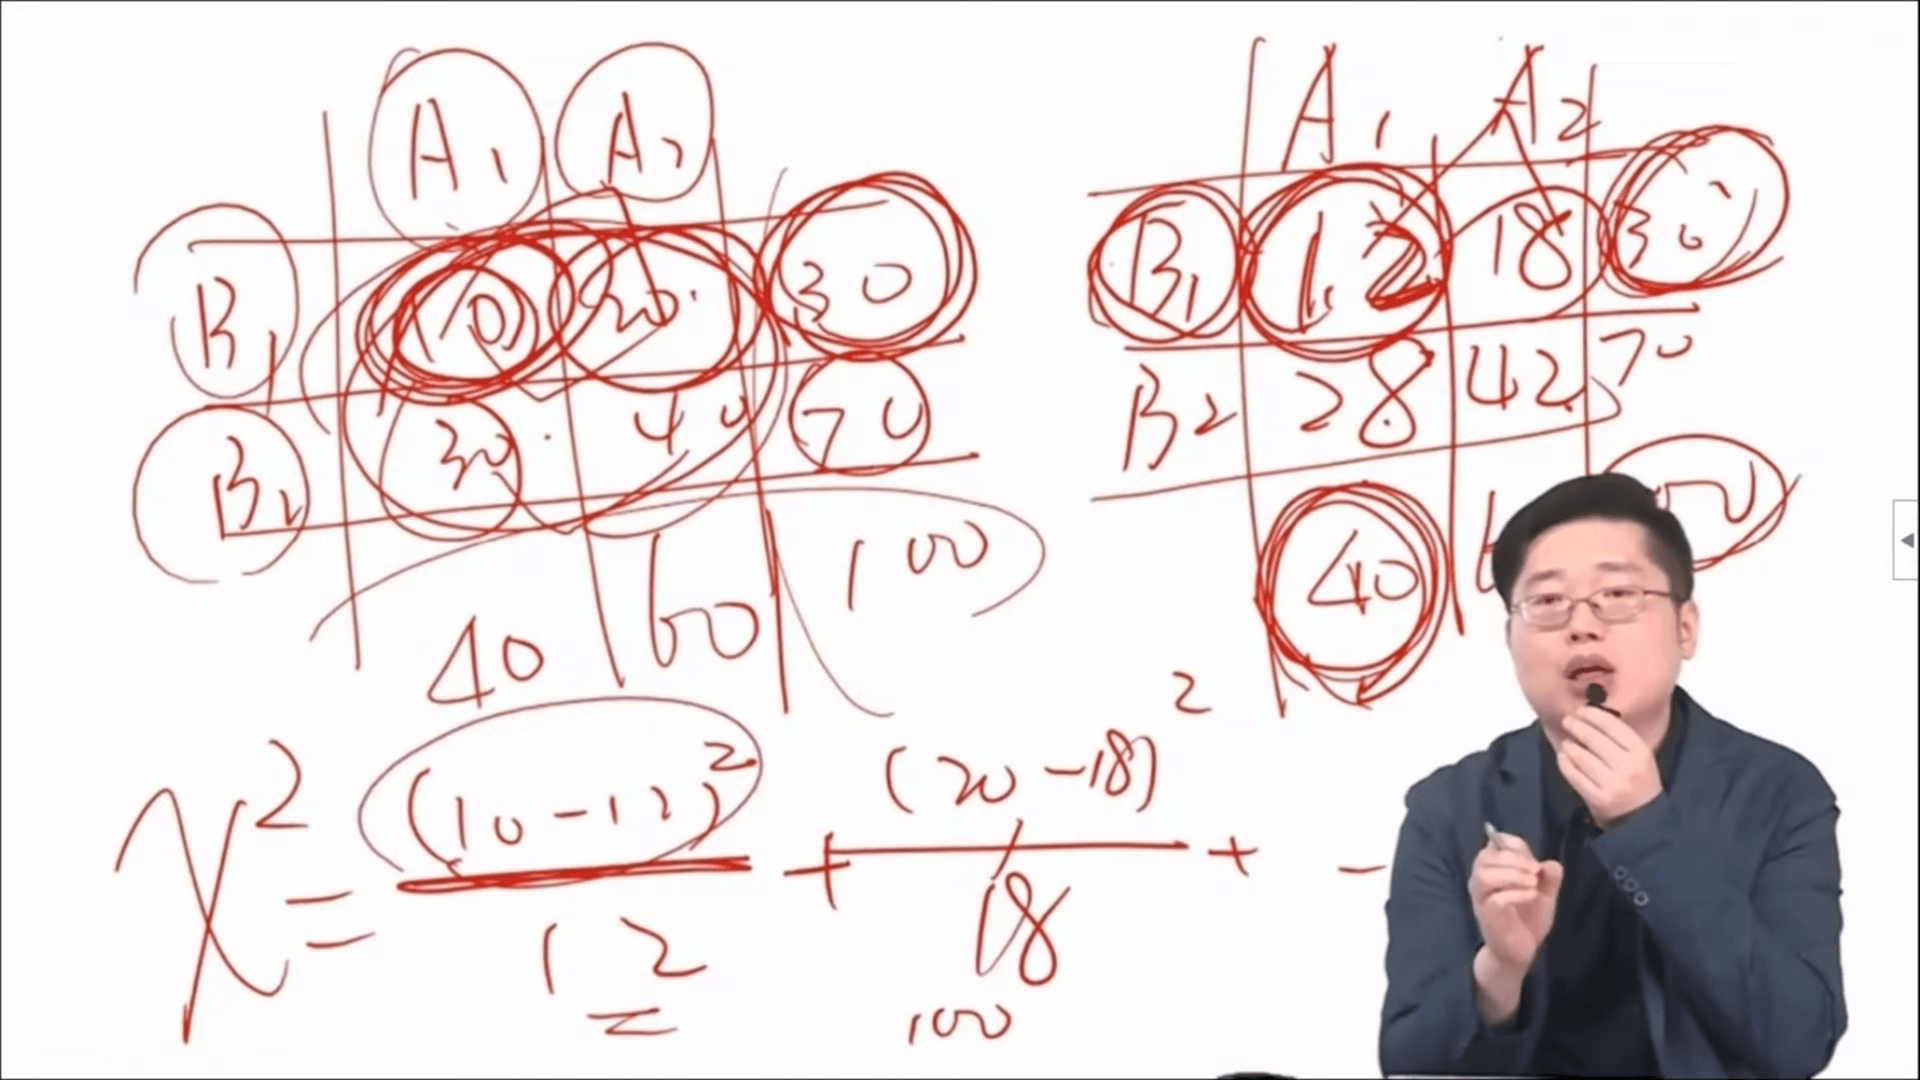 A₁ A₂
B₁ 10 20 30
B₂ 30 40 70
40 60 100
A₁ A₂
B₁ 12 18 30
B₂ 28 42 70
40
χ² = (10-12)²/12 + (20-18)²/18 + -
100